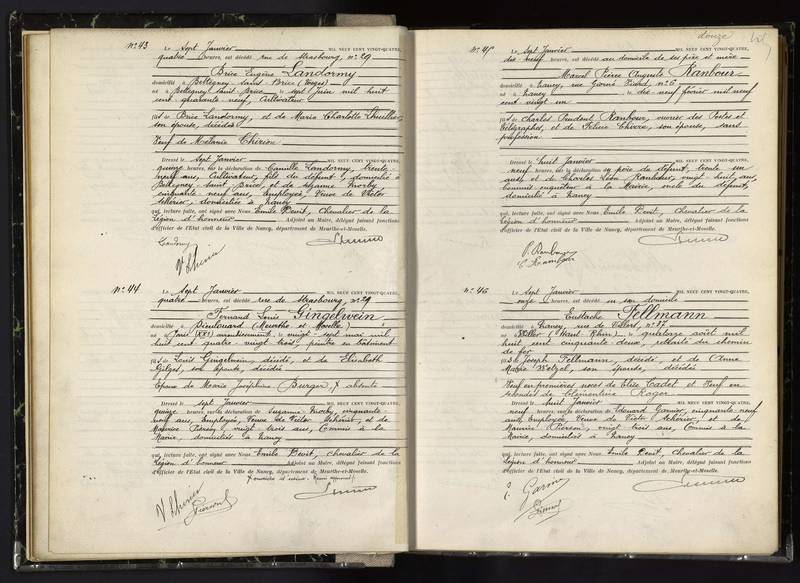 N° 43
Le sept Janvier MIL NEUF CENT VINGT-QUATRE,
quatre heures, est décédé rue de Strasbourg, n° 29
Brice Eugène Landormy
domicilié à Bettegney-Saint-Brice (Vosges)
né à Bettegney Saint Brice le sept Juin mil huit
cent quarante neuf, Cultivateur
fils de Brice Landormy, et de Marie Charlotte Lhuillier,
son épouse, décédés
Veuf de Mélanie Thirion
Dressé le sept Janvier MIL NEUF CENT VINGT-QUATRE,
quinze heures, sur la déclaration de Camille Landormy, trente
neuf ans, Cultivateur, fils du défunt, domicilié à
Bettegney Saint Brice, et de Suzanne
cinquante neuf ans, Employée, Veuve de Victor
domiciliée à Nancy
qui, lecture faite, ont signé avec Nous Emile Devit, Chevalier de la
Légion d'honneur Adjoint au Maire, délégué faisant fonctions
d'officier de l'Etat civil de la Ville de Nancy, département de Meurthe-et-Moselle.
Landormy
N° 44
Le sept Janvier MIL NEUF CENT VINGT-QUATRE,
quatre heures, est décédé rue de Strasbourg, n° 29
Fernand Louis Gingelwein
domicilié à Dieulouard (Meurthe et Moselle)
né à Paris (XXe) arrondissement, le vingt-sept mai mil
huit cent quatre-vingt trois, peintre en bâtiment
fils de Louis Gingelwein, décédé, et de Elisabeth
son épouse, décédée
Epoux de Marie Joséphine (Burger)
Dressé le sept Janvier MIL NEUF CENT VINGT-QUATRE,
quinze heures, sur la déclaration de Suzanne cinquante
neuf ans, Employée, Veuve de Victor et de
Maurice Pierson, vingt trois ans, Commis à la
Mairie, domiciliés à Nancy
qui, lecture faite, ont signé avec Nous Emile Devit, chevalier de la
Légion d'honneur Adjoint au Maire, délégué faisant fonctions
d'officier de l'Etat civil de la Ville de Nancy, département de Meurthe-et-Moselle.
Pierson
douze
N° 45
Le sept Janvier MIL NEUF CENT VINGT-QUATRE,
dix neuf heures, est décédé au domicile de ses père et mère
Marcel Pierre Auguste Rambour
domicilié à Nancy, rue n° 6
né à Nancy le dix-neuf février mil neuf
cent vingt un
fils de Charles Prudent Rambour, ouvrier des Postes et
Télégraphes, et de son épouse, sans
profession
Dressé le huit Janvier MIL NEUF CENT VINGT-QUATRE,
neuf heures, sur la déclaration du père du défunt, trente un
ans, et de Charles Léon Rambour, vingt huit ans,
Commis enquêteur à la Mairie, oncle du défunt,
domiciliés à Nancy
qui, lecture faite, ont signé avec Nous Emile Devit, Chevalier de la
Légion d'honneur Adjoint au Maire, délégué faisant fonctions
d'officier de l'Etat civil de la Ville de Nancy, département de Meurthe-et-Moselle.
P. Rambour
C. Rambour
N° 46
Le sept Janvier MIL NEUF CENT VINGT-QUATRE,
onze heures, est décédé en son domicile
Eustache Fellmann
domicilié à Nancy, rue de Villers, n° 37
né à Willer (Haut Rhin), le quatorze août mil
huit cent cinquante deux, retraité du chemin
de fer
fils de Joseph Fellmann, décédé, et de Anne
Marie Wetzel, son épouse, décédée
Veuf en premières noces de Elise Cadet et Veuf en
secondes de Clémentine Roger
Dressé le huit Janvier MIL NEUF CENT VINGT-QUATRE,
neuf heures, sur la déclaration de Edouard Garnier, cinquante neuf
ans, Employé, et de
Maurice Pierson, vingt trois ans, Commis à la
Mairie, domiciliés à Nancy
qui, lecture faite, ont signé avec Nous Emile Devit, Chevalier de la
Légion d'honneur Adjoint au Maire, délégué faisant fonctions
d'officier de l'Etat civil de la Ville de Nancy, département de Meurthe-et-Moselle.
Pierson